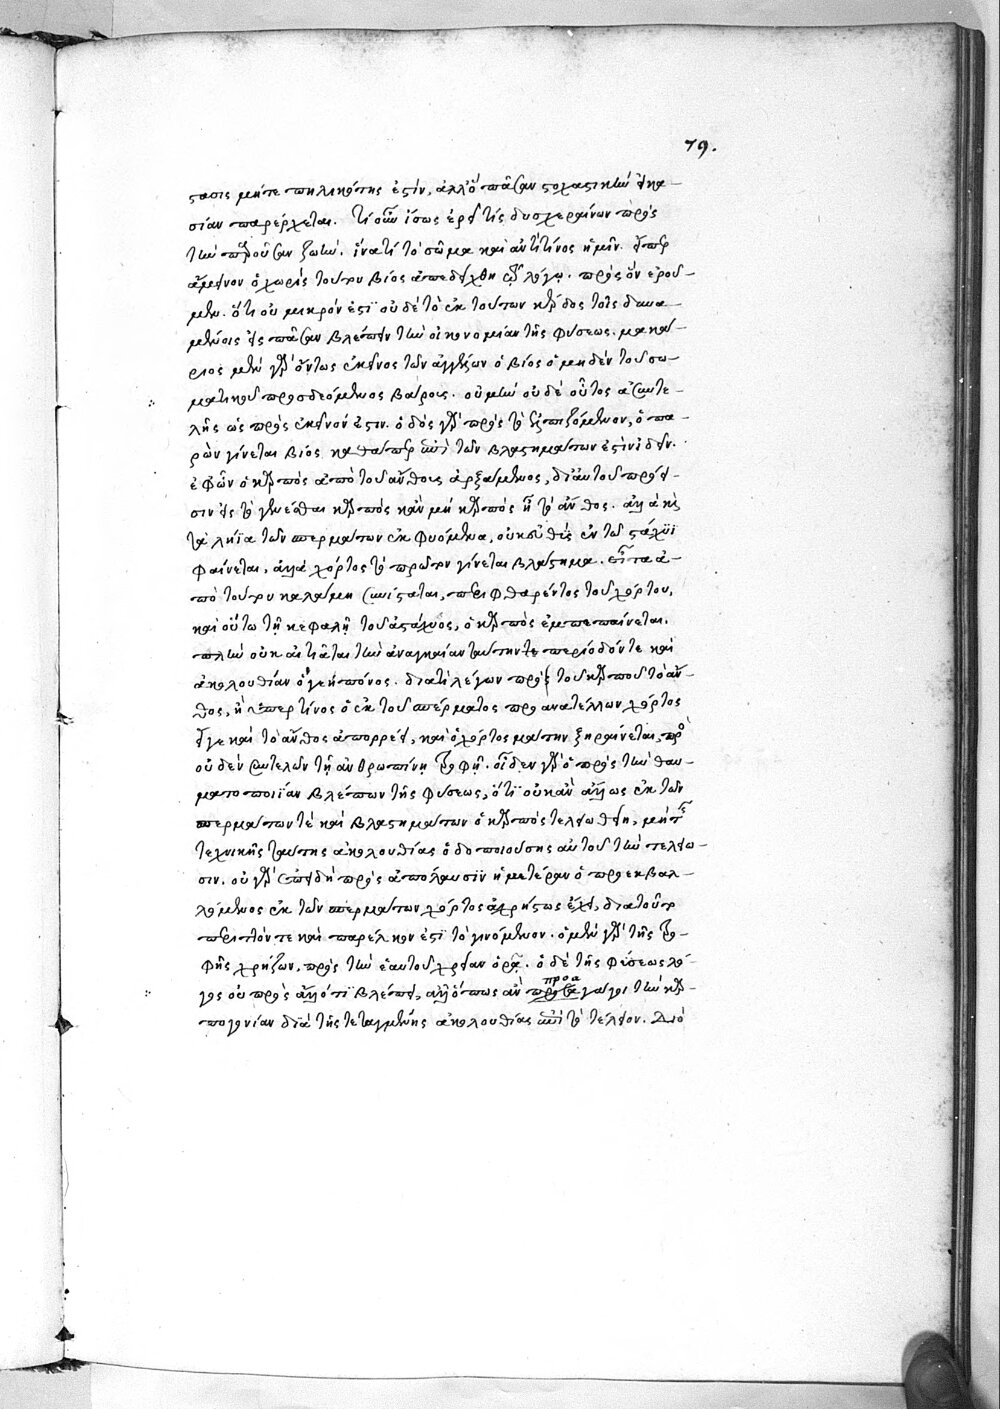 79.
στασις μήτε πηλικότης ἐστίν, ἀλλὰ πᾶσαν στοχαστικὴν εἰκα-
σίαν παρέρχεται. τί οὖν ἴσως ἐρεῖ τίς δυσχεραίνων πρὸς
τὴν παροῦσαν ζωήν. ἵνα τί τὸ σῶμα καὶ ἀντὶ τίνος ἡμῖν. εἴπερ
ἀμείνων ὁ χωρὶς τούτου βίος ἀπεδείχθη τῷ λόγῳ. πρὸς ὃν ἐροῦ-
μεν. ὅτι οὐ μικρόν ἐστι οὐδὲ τὸ ἐκ τούτων κέρδος τοῖς δυνα-
μένοις εἰς πᾶσαν βλέπειν τὴν οἰκονομίαν τῆς φύσεως. μακά-
ριος μὲν γὰρ ὄντως ἐκεῖνος τῶν ἀγγέλων ὁ βίος ὁ μηδὲν τοῦ σω-
ματικοῦ προσδεόμενος βάρους. οὐ μὴν οὐδὲ οὗτος ἀσυντε-
λὴς ὡς πρὸς ἐκεῖνόν ἐστιν. ὁδὸς γὰρ πρὸς τὸ ἐλπιζόμενον, ὁ πα-
ρὼν γίνεται βίος καθάπερ ἐπὶ τῶν βλαστημάτων ἐστὶν ἰδεῖν.
ἐφῶν ὁ καρπὸς ἀπὸ τοῦ ἄνθους ἀρξάμενος, δι αὐτοῦ πρόει-
σιν εἰς τὸ γενέσθαι καρπὸς κἂν μὴ καρπὸς ᾖ τὸ ἄνθος. ἀλλὰ κỳ
τὰ λήϊα τῶν σπερμάτων ἐκφυόμενα, οὐκ εὐθὺς ἐν τῷ στάχυϊ
φαίνεται, ἀλλὰ χόρτος τὸ πρῶτον γίνεται βλάστημα. εἶτα ἀ-
πὸ τούτου καλάμη συνίσταται, περιφθαρέντος τοῦ χόρτου,
καὶ οὕτω τῇ κεφαλῇ τοῦ ἀστάχυος, ὁ καρπὸς ἐμπεπαίνεται.
πλὴν οὐκ αἰτιᾶται τὴν ἀναγκαίαν ταύτην τε περίοδόν τε καὶ
ἀκολουθίαν ὁ γεηπόνος. διατί λέγων πρὸ τοῦ καρποῦ τὸ ἄν-
θος, ἢ ὑπὲρ τίνος ὁ ἐκ τοῦ σπέρματος προανατέλλων χόρτος
εἴγε καὶ τὸ ἄνθος ἀπορρεῖ, καὶ ὁ χόρτος μάτην ξηραίνεται πρὸ
οὐδὲν συντελῶν τῇ ἀνθρωπίνῃ τροφῇ. οἶδεν γὰρ ὁ πρὸς τὴν θαυ-
ματοποιΐαν βλέπων τῆς φύσεως, ὅτι οὐκ ἂν ἄλλως ἐκ τῶν
σπερμάτων τὲ καὶ βλαστημάτων ὁ καρπὸς τελειωθείη, μὴ τῆς
τεχνικῆς ταύτης ἀκολουθίας ὁδοποιούσης αὐτοῦ τὴν τελείω-
σιν. οὐ γὰρ ἐπειδὴ πρὸς ἀπόλαυσιν ἡμετέραν ὁ προεκβαλ-
λόμενος ἐκ τῶν σπερμάτων χόρτος ἀχρήστως ἔχει, διατοῦτο
περιττόν τε καὶ παρέλκον ἐστὶ τὸ γινόμενον. ὁ μὲν γὰρ τῆς τρο-
φῆς χρήζων, πρὸς τὴν ἑαυτοῦ χρείαν ὁρᾷ. ὁ δὲ τῆς φύσεως λό-
γος οὐ πρὸς ἄλλό τι βλέπει, ἀλλ' ὅπως ἂν προαγάγοι τὴν καρ-
πογονίαν διὰ τῆς τεταγμένης ἀκολουθίας ἐπὶ τὸ τέλειον. Διὸ